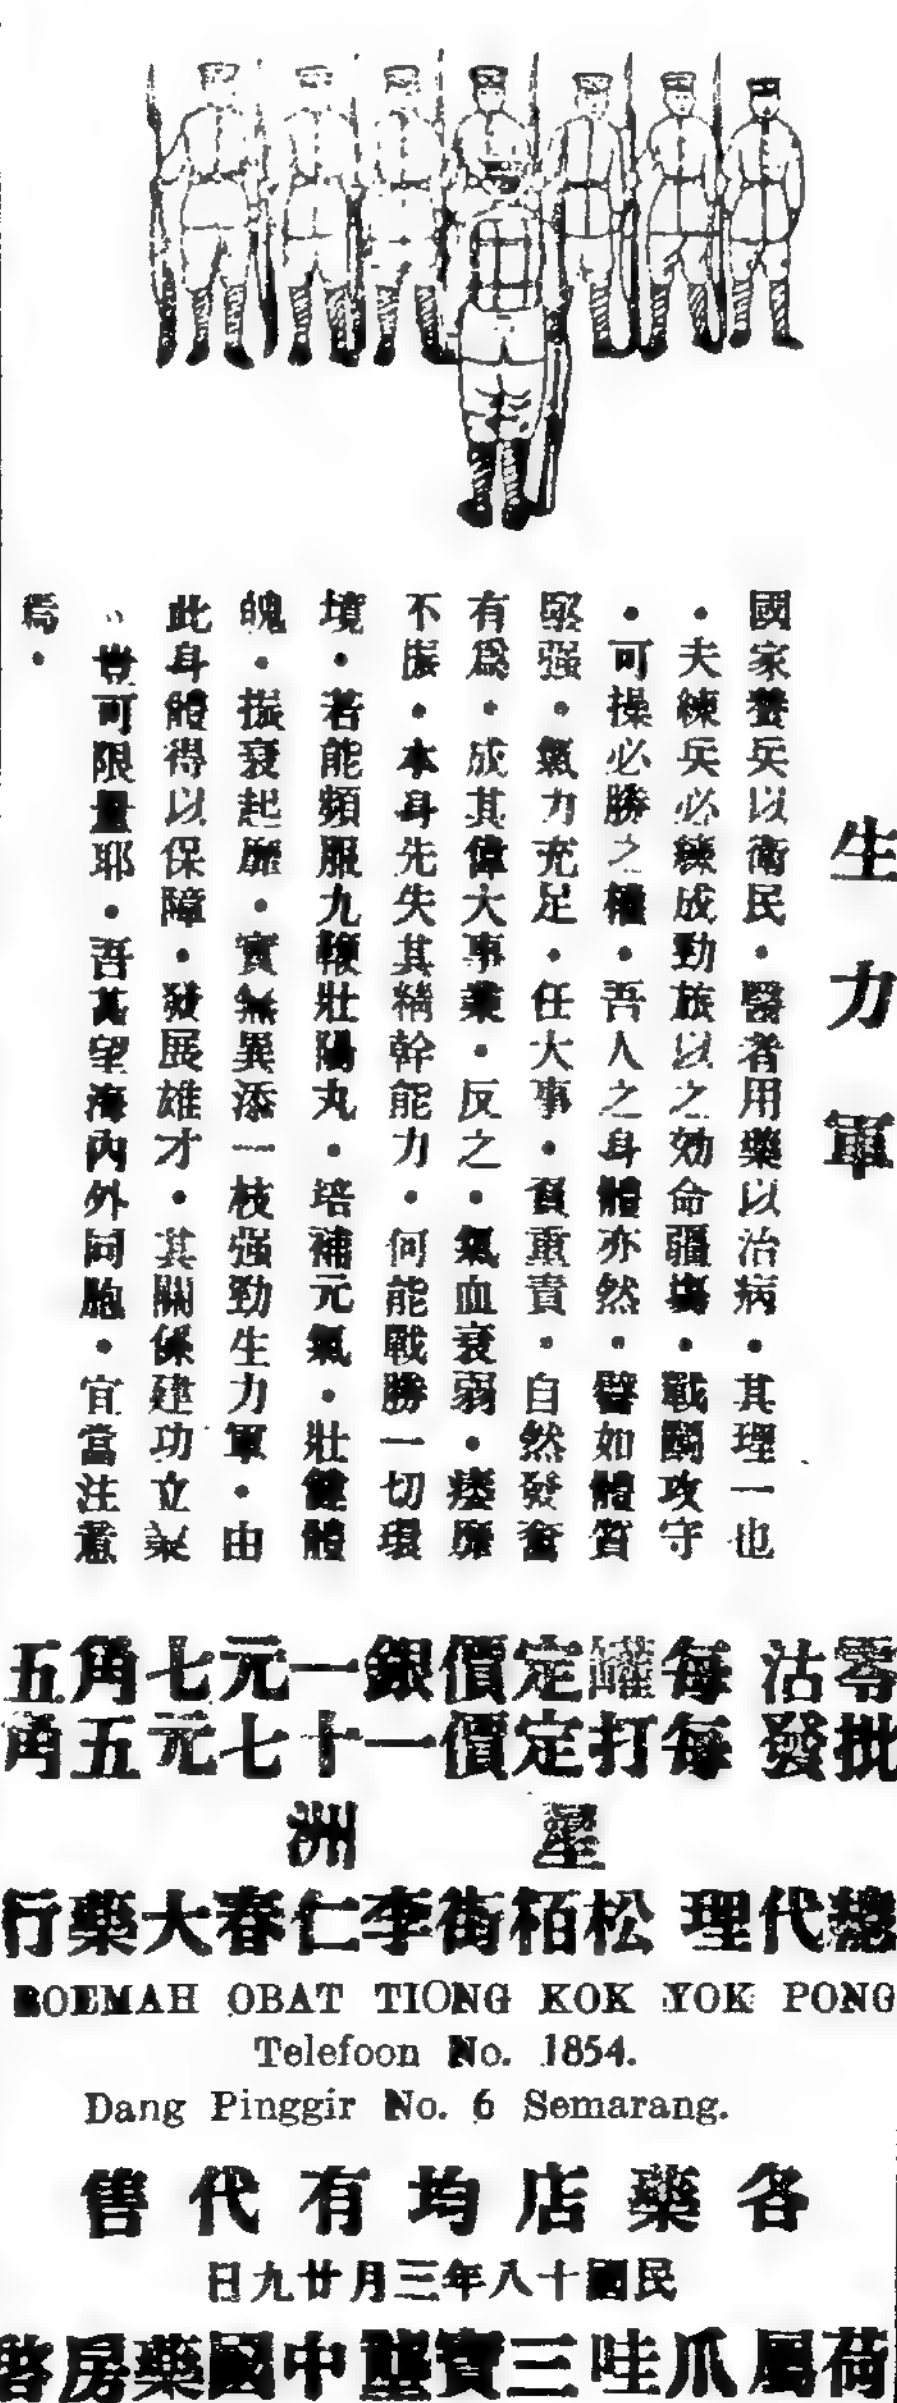 生力軍
國家養兵以衛民・醫者用藥以治病・其理一也
・夫練兵必練成勁族以之効命疆場・戰鬭攻守
・可操必勝之權・吾人之身體亦然・譬如體質
堅强・氣力充足・任大事・負重責・自然發奮
有爲・成其偉大事業・反之・氣血衰弱・痿靡
不振・本身先失其精幹能力・何能戰勝一切環
境・若能頻服九鞭壯陽丸・培補元氣・壯健體
魄・振衰起靡・實無異添一枝强勁生力軍・由
此身體得以保障・發展雄才・其關係建功立業
、豈可限量耶・吾甚望海內外同胞・宜當注意
焉・
零沽 每罐定價銀一元七角五
批發 每打定價一十七元五角
星洲
總代理 松栢街李仁春大藥行
ROEMAH OBAT TIONG KOK YOK PONG
Telefoon No. 1854.
Dang Pinggir No. 6 Semarang.
各藥店均有代售
民國十八年三月廿九日
荷屬爪哇三寶壟中國藥房啓